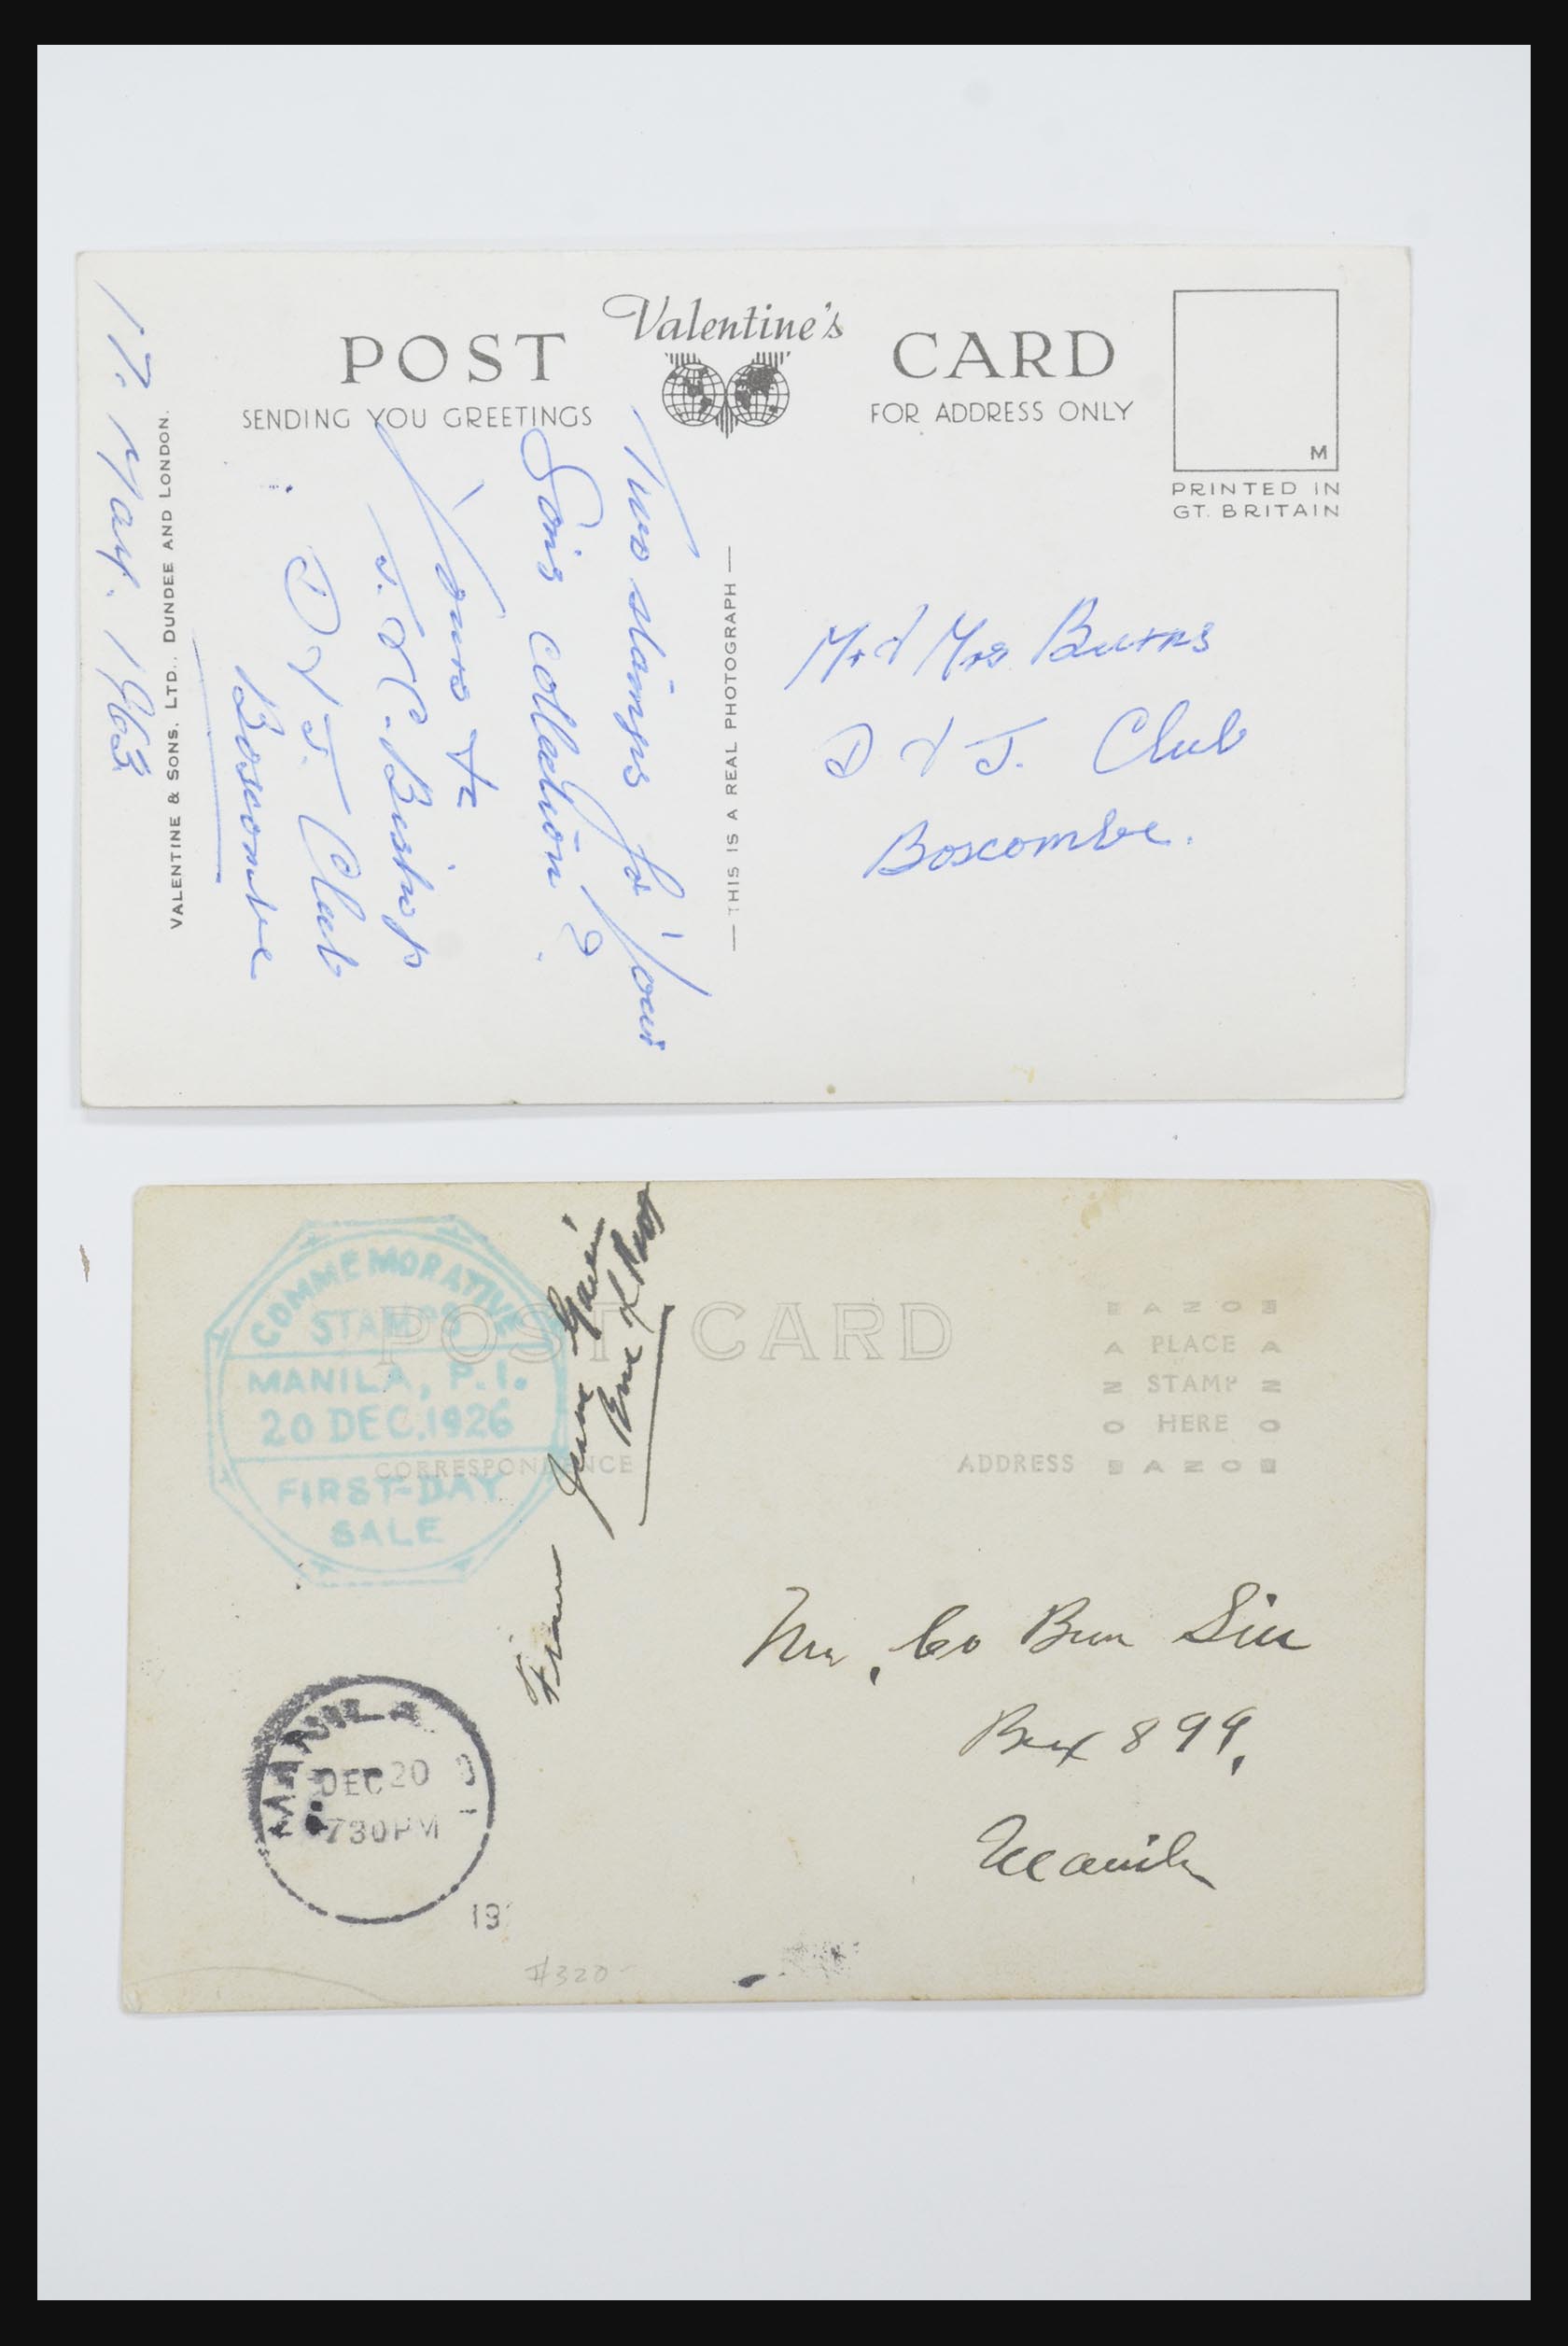 POST
Valentine's
CARD
SENDING YOU GREETINGS
FOR ADDRESS ONLY
M
PRINTED IN
GT. BRITAIN
Two stamps for Your
Sons collection?
Yours
J. & C. Bishop
D & J. Club
Boscombe
17. May. 1963
VALENTINE & SONS. LTD., DUNDEE AND LONDON.
— THIS IS A REAL PHOTOGRAPH —
Mr & Mrs Burns
D & J. Club
Boscombe.
COMMEMORATIVE
STAMPS
MANILA, P.I.
20 DEC. 1926
FIRST-DAY
SALE
POST CARD
CORRESPONDENCE
ADDRESS
AZO
PLACE
STAMP
HERE
AZO
From
Mr. Co Bun
Box 899,
Manila
MANILA
DEC 20
730PM
19
#320-